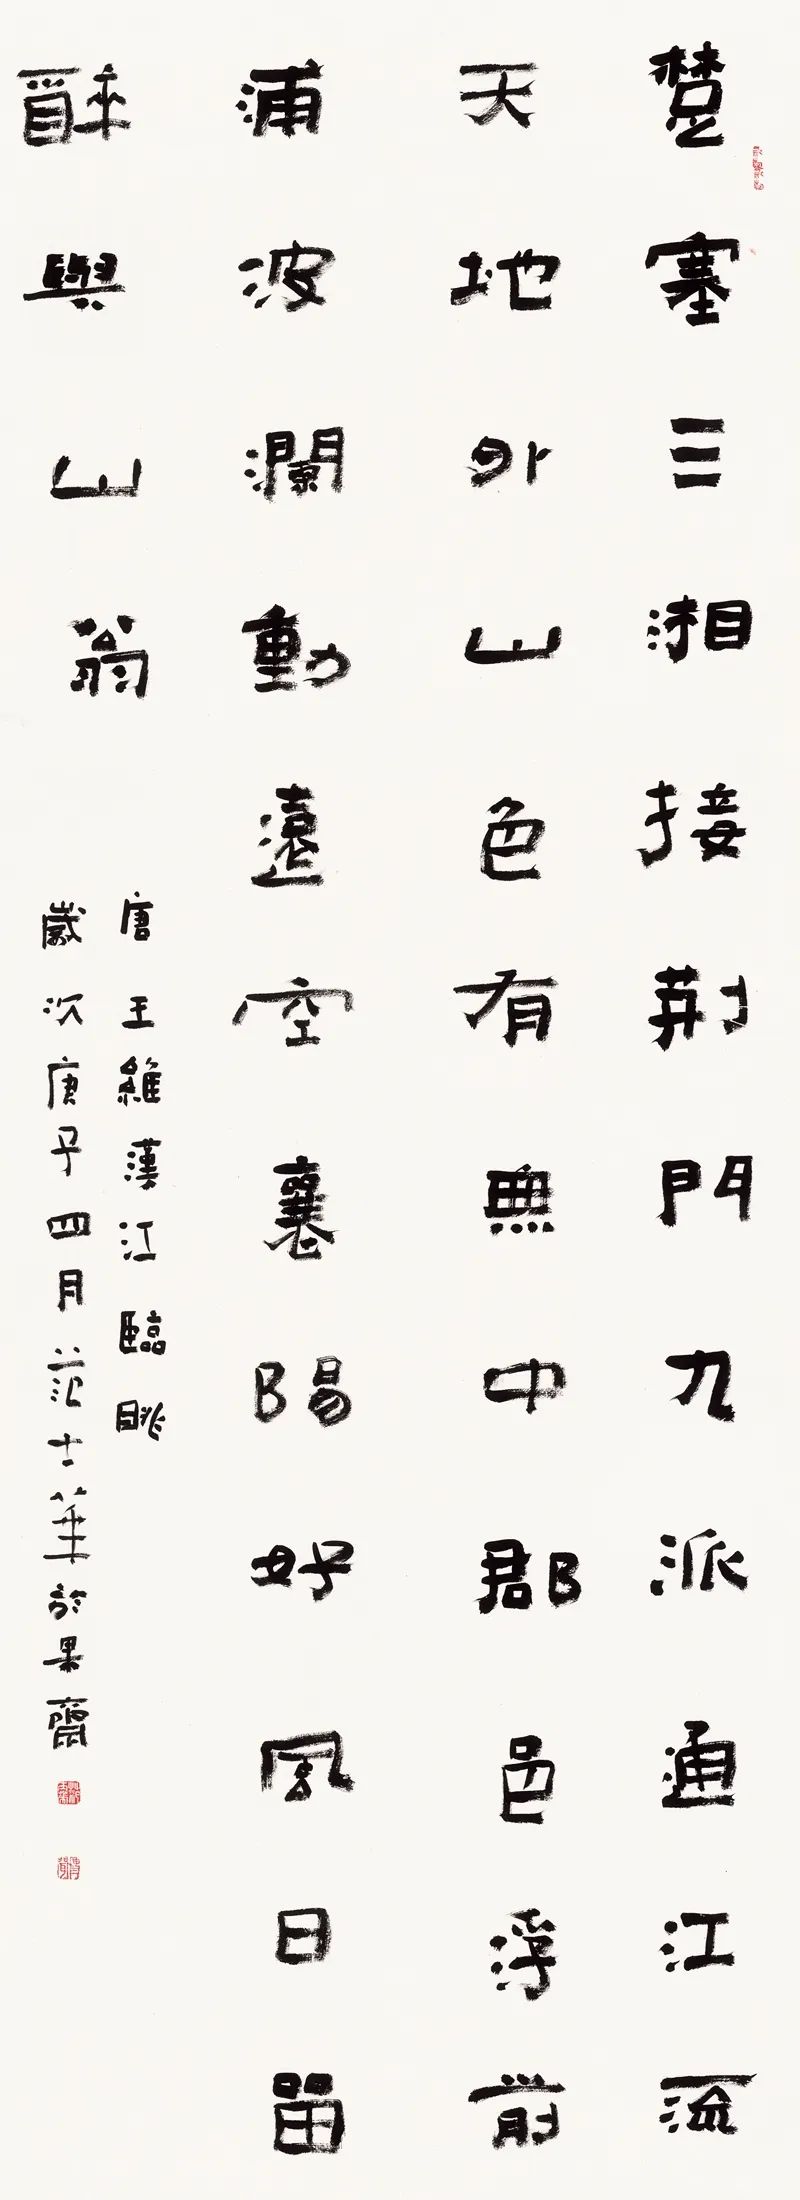 楚塞三湘接荊門九派通江流
天地外山色有無中郡邑浮前
浦波瀾動遠空襄陽好風日留
醉與山翁
唐王維漢江臨眺
歲次庚子四月范士華於果齋